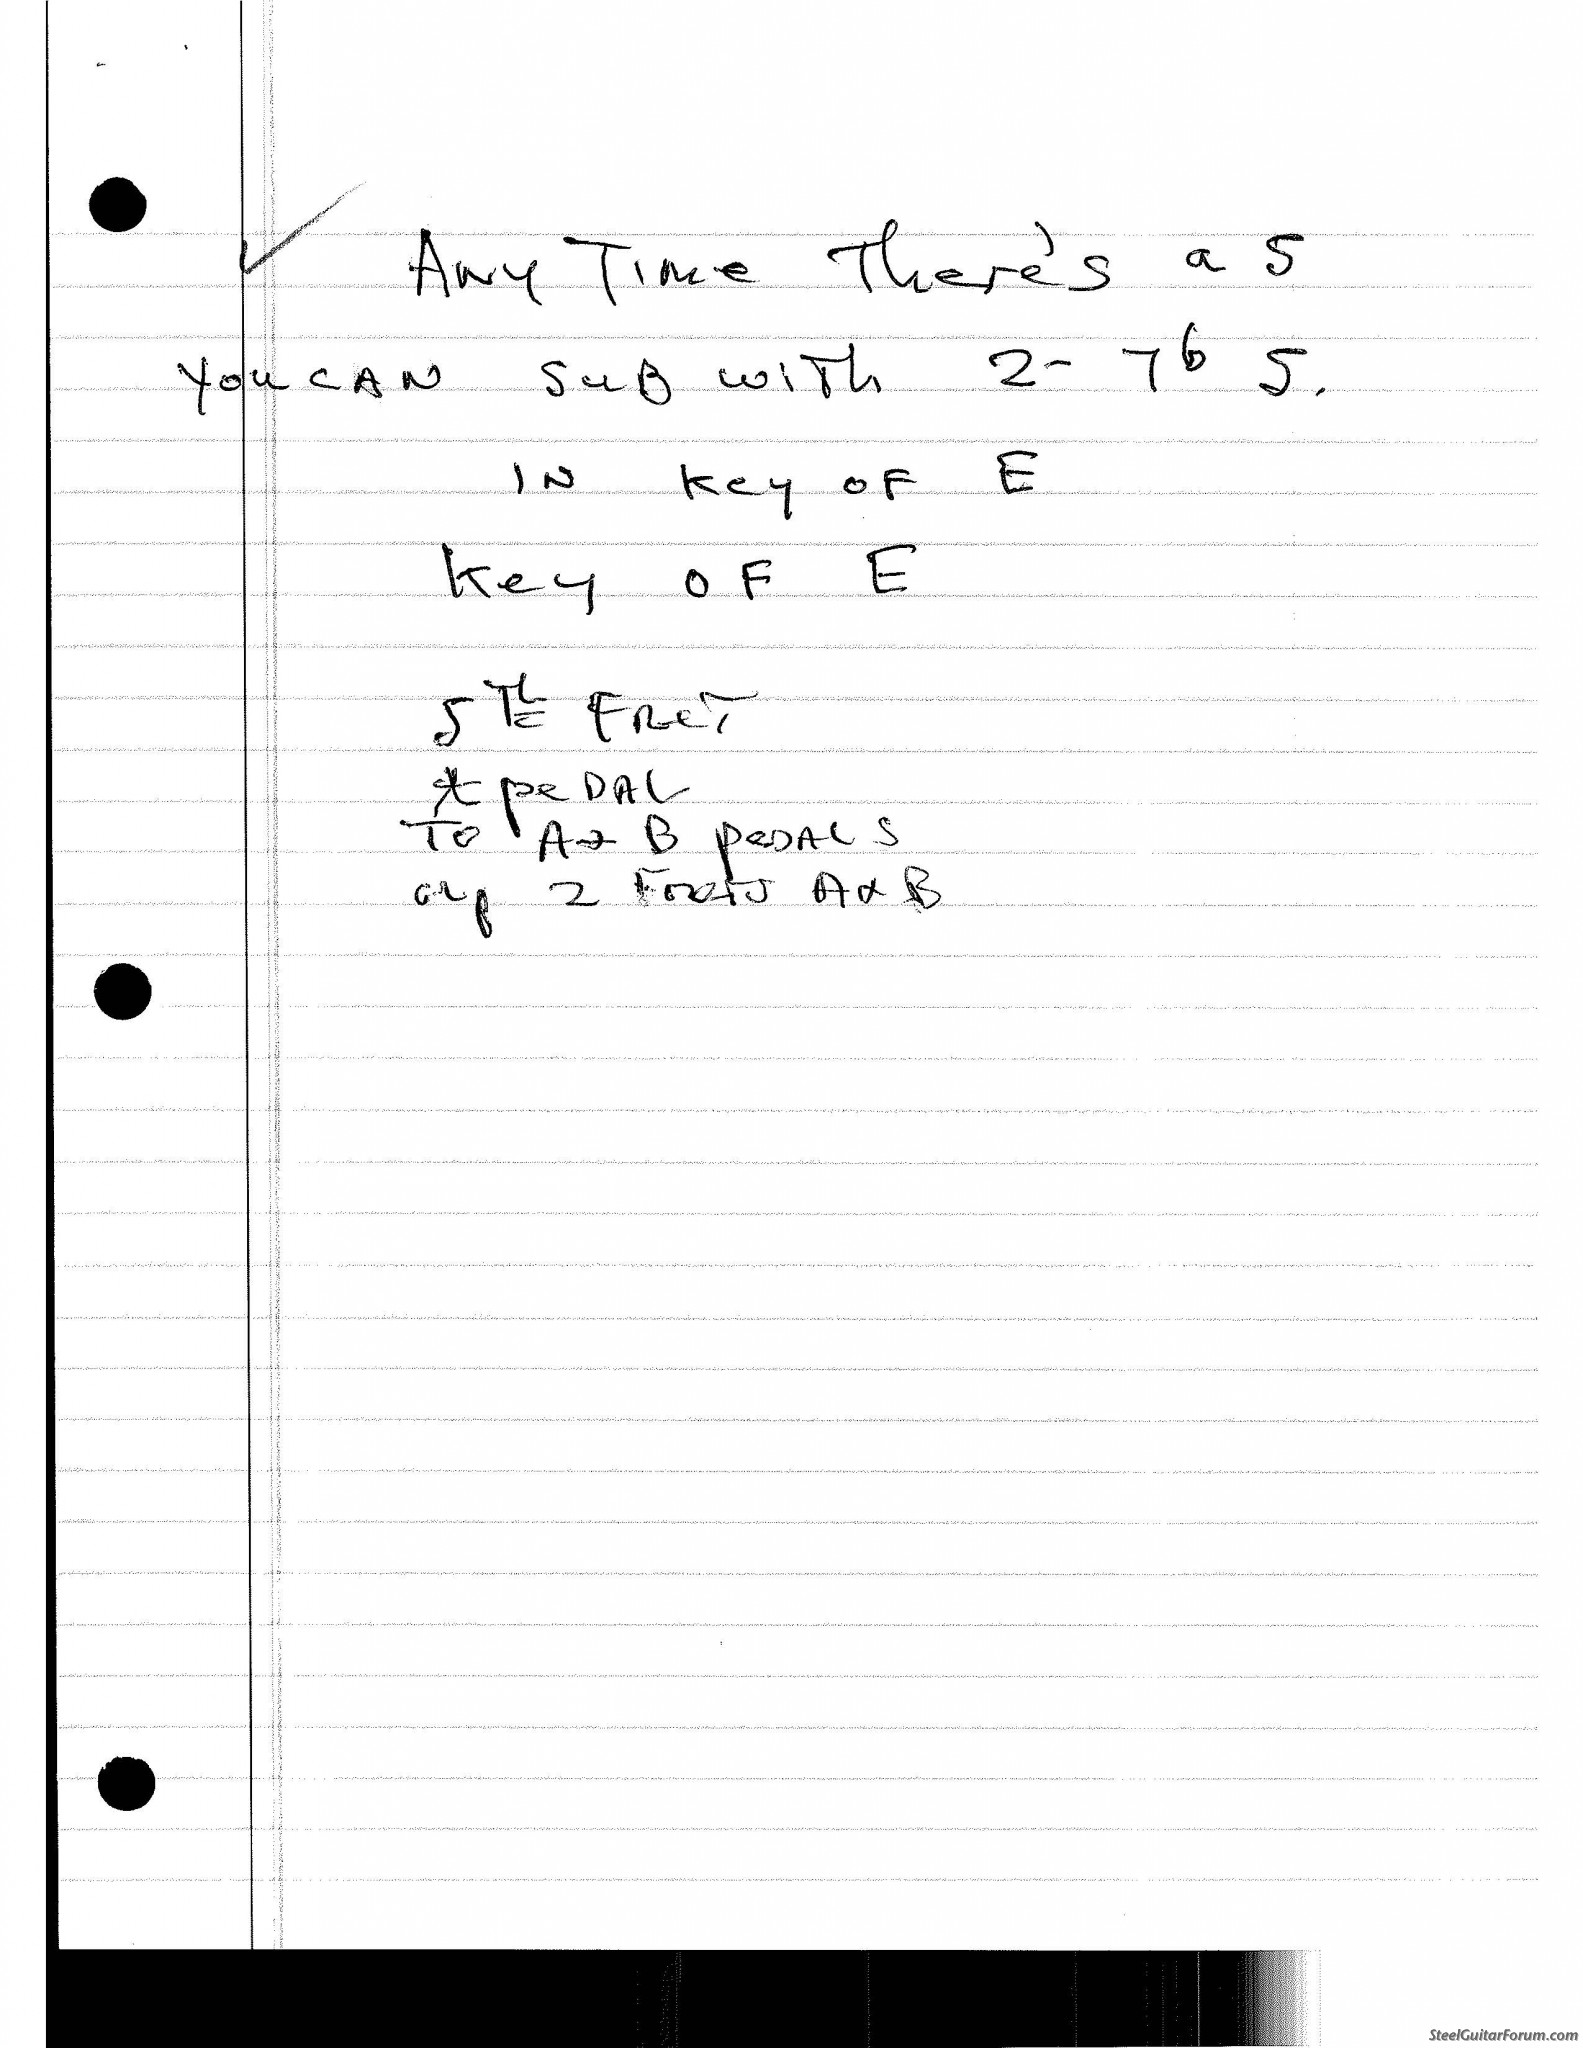 Any Time There's a 5
you CAN SUB with 2- 7b 5.
IN Key OF E
Key OF E
5Th Fret
peDAL
To A & B peDALS
up 2 Frets A & B
SteelGuitarForum.com